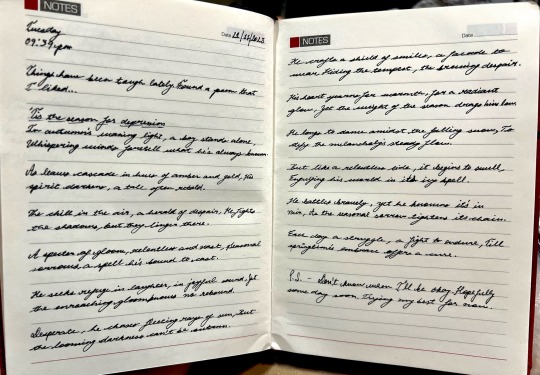 NOTES
Date 12/12/2023
Tuesday
09:39 pm
Things have been tough lately. Found a poem that
I liked...
'Tis the season for depression
In autumn's waning light, a boy stands alone,
Whispering winds foretell what he's always known.
As leaves cascade in hues of amber and gold, His
spirit darkens, a tale often retold.
The chill in the air, a herald of despair, He fights
the shadows, but they linger there.
A specter of gloom, relentless and vast, Seasonal
sorrow's a spell he's bound to cast.
He seeks refuge in laughter, in joyful sound, Yet
the encroaching gloom knows no rebound.
Desperate, he chases fleeting rays of sun, But
the looming darkness can't be outrun.
NOTES
Date
He crafts a shield of smiles, a facade to
wear, Hiding the tempest, the brewing despair.
His heart yearns for warmth, for a radiant
glow, Yet the weight of the season drags him low.
He longs to dance amidst the falling snow, To
defy the melancholy's steady flow.
But like a relentless tide, it begins to swell,
Engulfing his world in its icy spell.
He battles bravely, yet he knows it's in
vain, As the seasonal sorrow tightens its chain.
Each day a struggle, a fight to endure, Till
springtime's embrace offers a cure.
P.S. - Don't know when I'll be okay. Hopefully
some day soon. Trying my best for now.